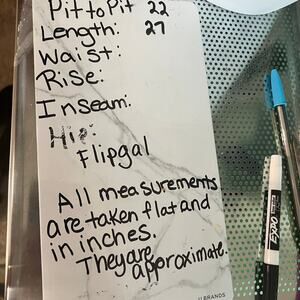 Pit to Pit 22
Length: 27
Waist:
Rise:
Inseam:
Hip:
Flipgal
All measurements
are taken flat and
in inches.
They are
approximate.
EXPO
U BRANDS